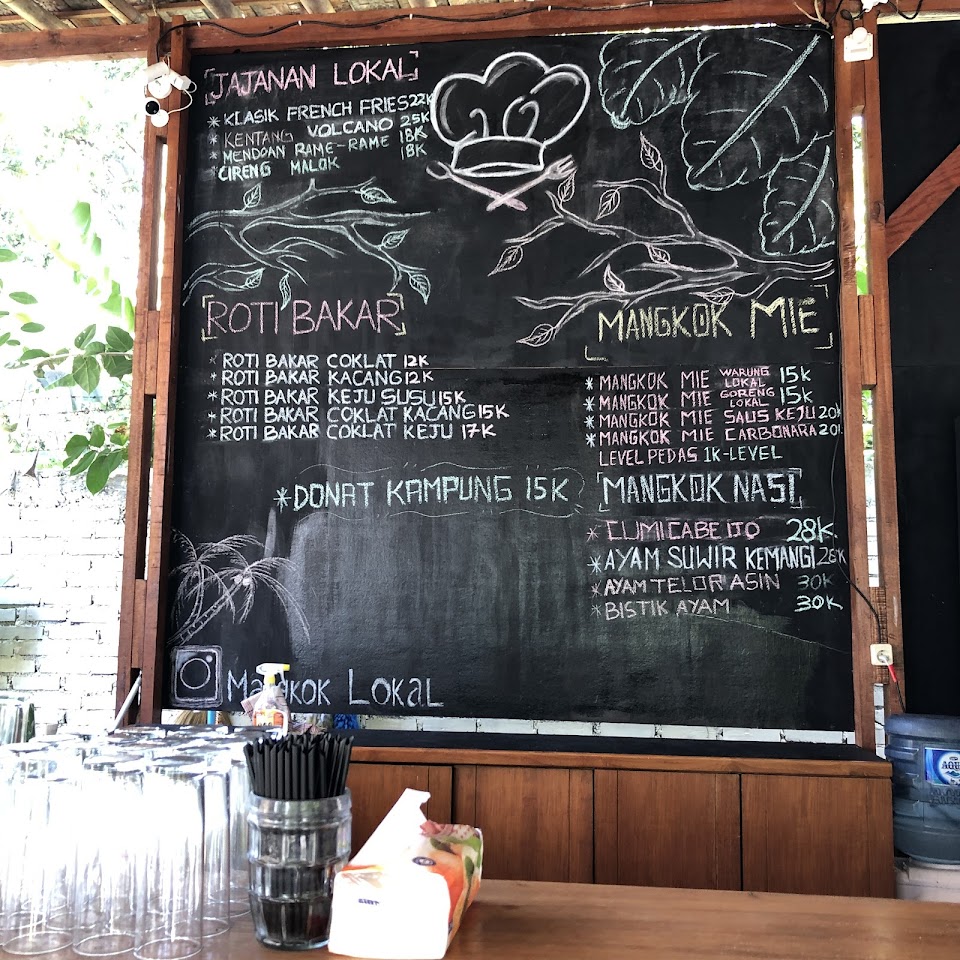 JAJANAN LOKAL
* KLASIK FRENCH FRIES 22K
* KENTANG VOLCANO 25K
* MENDOAN RAME-RAME 18K
* CIRENG MALOK 18K
ROTI BAKAR
* ROTI BAKAR COKLAT 12K
* ROTI BAKAR KACANG 12K
* ROTI BAKAR KEJU SUSU 15K
* ROTI BAKAR COKLAT KACANG 15K
* ROTI BAKAR COKLAT KEJU 17K
* DONAT KAMPUNG 15K
MANGKOK MIE
* MANGKOK MIE WARUNG LOKAL 15K
* MANGKOK MIE GORENG LOKAL 15K
* MANGKOK MIE SAUS KEJU 20K
* MANGKOK MIE CARBONARA 20K
LEVEL PEDAS 1K-LEVEL
MANGKOK NASI
* CUMI CABE IJO 28K
* AYAM SUWIR KEMANGI 28K
* AYAM TELOR ASIN 30K
* BISTIK AYAM 30K
MANGKOK LOKAL